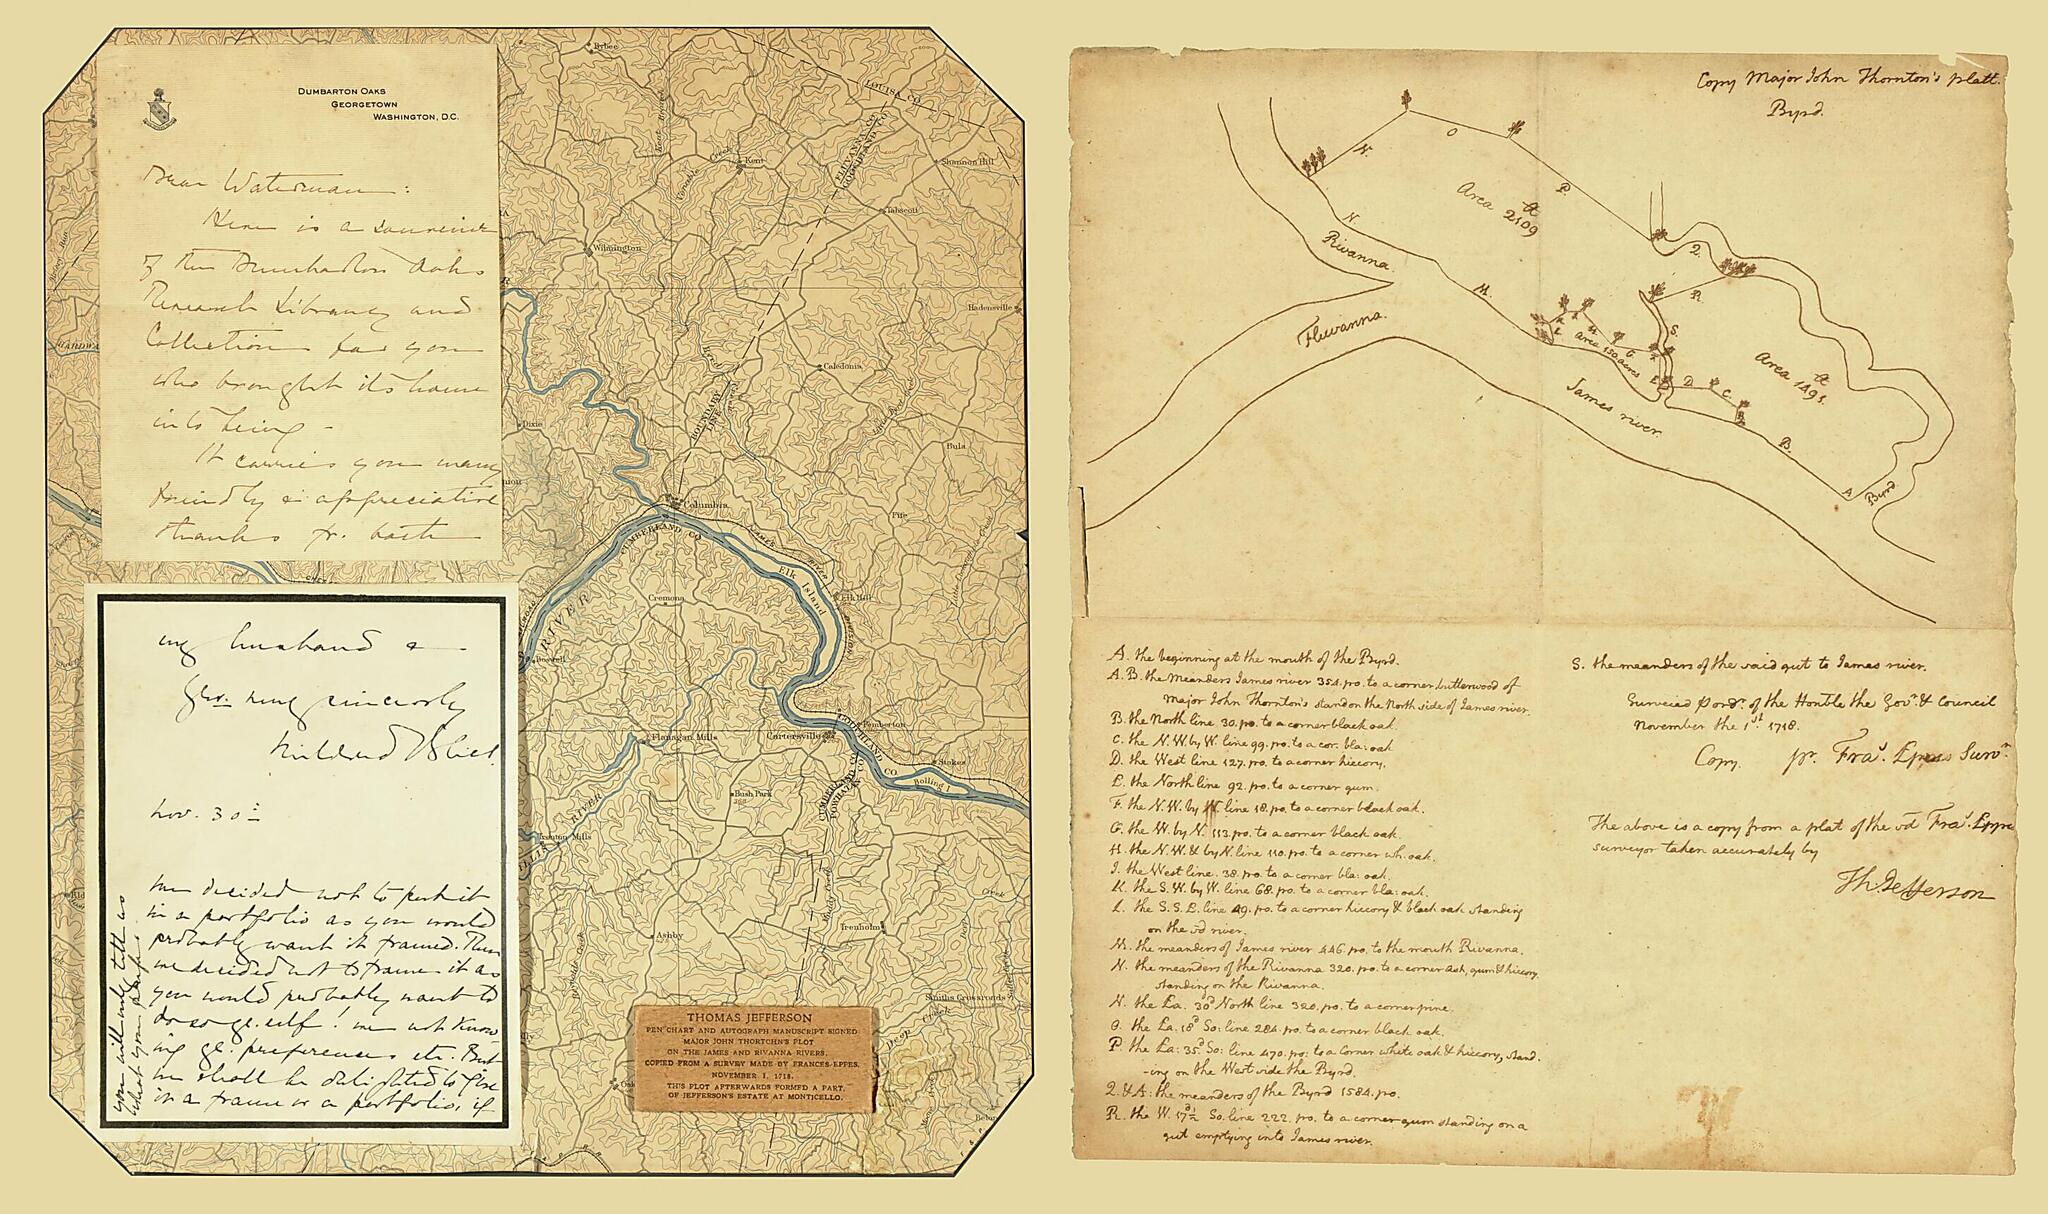 DUMBARTON OAKS
GEORGETOWN
WASHINGTON, D.C.
Dear Waterman:
Here is a souvenir
of the Dumbarton Oaks
Research Library and
Collection for you
who brought its home
into being –
It carries you many
friendly & appreciative
thanks fr. both
my husband &
yrs. very sincerely
Mildred Bliss.
Nov. 30
We decided not to put it
in a portfolio as you would
probably want it framed. Then
we decided not to frame it as
you would probably want to
do so yr. self! we not know-
ing yr. preferences etc. But
we shall be delighted to give
it a frame or a portfolio, if
you will only tell us
what you prefer
Bybee
LOUISA CO
FLUVANNA CO
GOOCHLAND CO
Kent
Venable Creek
Shannon Hill
Tabscott
Wilmington
Hadensville
HARDWA
Caledonia
BOUNDARY LINE
Dixie
Bula
Columbia
Fife
CUMBERLAND CO
JAMES RIVER DIVISION
Elk Island
Elk Hill
Cremona
RIVER
Pemberton
Cartersville
GOOCHLAND CO
Flanagan Mills
Stokes
Bolling I
Bush Park
CUMBERLAND CO
POWHATAN CO
WILLIS RIVER
Trenton Mills
Ashby
Trenholm
Smiths Crossroads
Deep Creek
THOMAS JEFFERSON
PEN CHART AND AUTOGRAPH MANUSCRIPT SIGNED
MAJOR JOHN THORTCHN'S PLOT
ON THE JAMES AND RIVANNA RIVERS.
COPIED FROM A SURVEY MADE BY FRANCES-EPPES,
NOVEMBER 1, 1718.
THIS PLOT AFTERWARDS FORMED A PART,
OF JEFFERSON'S ESTATE AT MONTICELLO.
Copy Major John Thornton's platt.
Byrd.
N.
O
P.
Area 2109 a
N.
Rivanna.
M.
Q.
R.
Fluvanna.
L
K
I
H
G
Area 150 acres
S.
F
E
D
C.
B
Area 1491. a
James river.
B.
A
Byrd
A. the beginning at the mouth of the Byrd.
A.B. the Meanders James river 354. po. to a corner butterwood of
Major John Thornton's stand on the North side of James river.
B. the North line 30. po. to a corner black oak.
C. the N.W. by W. line 99. po. to a cor. bla: oak
D. the West line 127. po. to a corner hiccory.
E. the North line 92. po. to a corner gum.
F. the N.W. by W. line 18. po. to a corner black oak.
G. the W. by N. 113. po. to a corner black oak.
H. the N.W. & by N. line 110. po. to a corner wh. oak.
I. the West line. 38. po. to a corner bla: oak.
K. the S.W. by W. line 68. po. to a corner bla: oak.
L. the S.S.E. line 49. po. to a corner hiccory & black oak standing
on the sd river.
M. the meanders of James river 446. po. to the mouth Rivanna.
N. the meanders of the Rivanna 320. po. to a corner ash, gum & hiccory,
standing on the Rivanna.
N. the Ea. 30d North line 320. po. to a corner pine.
O. the Ea. 18d So: line 284. po. to a corner black oak.
P. the Ea: 35d So: line 470. po: to a corner white oak & hiccory, stand.
-ing on the West side the Byrd.
Q. & A: the meanders of the Byrd 1584. po.
R. the W. 17d½ So. line 222. po. to a corner gum standing on a
gut emptying into James river.
S. the meanders of the said gut to James river.
Surveied p ordr. of the Honble the Govr. & Council
November the 1st 1718.
Copy. pr. Fras. Epes Survr
The above is a copy from a plat of the sd Fras. Eppe
surveyor taken accurately by
Th Jefferson